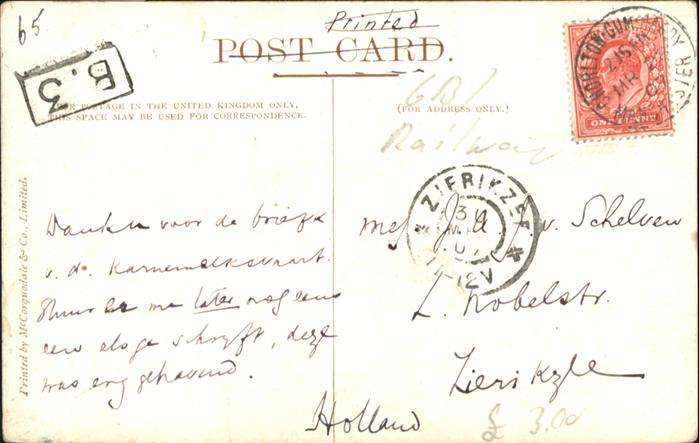 65
Printed
POST CARD.
B.3
FOR POSTAGE IN THE UNITED KINGDOM ONLY,
THIS SPACE MAY BE USED FOR CORRESPONDENCE.
(FOR ADDRESS ONLY.)
GB/
Railway
ONE PENNY
CHORLTON-CUM-HARDY
MR
ZIERIKZEE
Printed by McCorquodale & Co., Limited.
Danken voor de briefk
v. d. Karnemelksvaart.
Stuur er me later nog eens
een als ge schryft, deze
was erg gehavend.
Mej. J. A. v. Schelven
L. Nobelstr.
Zierikzee
Holland
£ 3.00